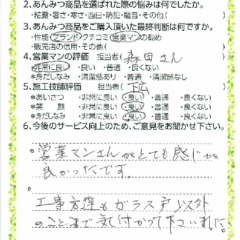 2、あんみつ商品を選ばれた際の悩みは何でしたか。
・結露・暑さ・寒さ・西日・防犯・騒音・その他(
3、あんみつ商品をご購入頂いた最終判断は何ですか。
・性能・ブランド・クチコミ・営業マンの勧め
・販売店の信用・その他(
4、営業マンの評価 担当者( 森田さん
・非常に良い ・良い ・普通 ・良くない
＊身だしなみ ・清潔感あり ・普通 ・清潔感なし
5、施工技師評価 担当( 下
＊あいさつ ・非常に良い ・良い ・普通 ・良くない
＊笑顔 ・非常に良い ・良い ・普通 ・良くない
＊身だしなみ ・非常に良い ・良い ・普通 ・良くない
6、今後のサービス向上のため、ご意見をお聞かせ下さい。
営業マンさんがとても感じが
良かったです。
工事方達もガラス戸以外
のことまで気付かって下さいました